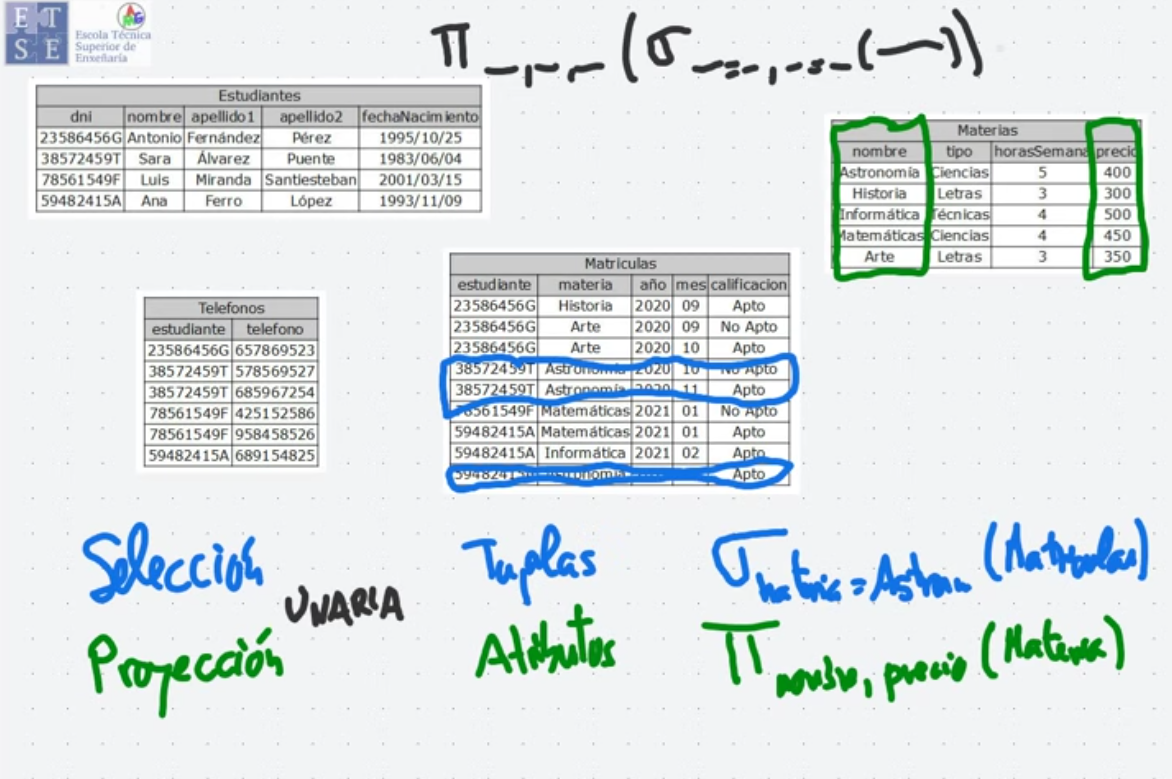 E T
S E
Escola Técnica
Superior de
Enxeñaría
π _,_,_ (σ _=_,_=_ (—))
Estudiantes
dni nombre apellido1 apellido2 fechaNacimiento
23586456G Antonio Fernández Pérez 1995/10/25
38572459T Sara Álvarez Puente 1983/06/04
78561549F Luis Miranda Santiesteban 2001/03/15
59482415A Ana Ferro López 1993/11/09
Materias
nombre tipo horasSemana precio
Astronomía Ciencias 5 400
Historia Letras 3 300
Informática Técnicas 4 500
Matemáticas Ciencias 4 450
Arte Letras 3 350
Matriculas
estudiante materia año mes calificacion
23586456G Historia 2020 09 Apto
23586456G Arte 2020 09 No Apto
23586456G Arte 2020 10 Apto
38572459T Astronomía 2020 10 No Apto
38572459T Astronomía 2020 11 Apto
78561549F Matemáticas 2021 01 No Apto
59482415A Matemáticas 2021 01 Apto
59482415A Informática 2021 02 Apto
Astronomía Apto
Telefonos
estudiante telefono
23586456G 657869523
38572459T 578569527
38572459T 685967254
78561549F 425152586
78561549F 958458526
59482415A 689154825
Selección Tuplas σ materia = Astron (Matriculas)
UNARIA
Proyección Atributos π nombre, precio (Materia)